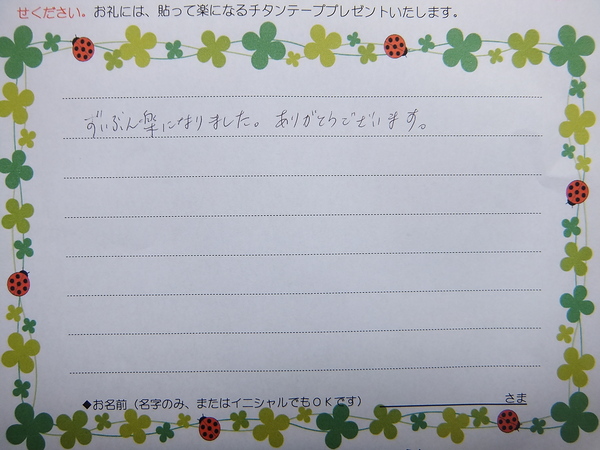 せください。お礼には、貼って楽になるチタンテーププレゼントいたします。
ずいぶん楽になりました。ありがとうございます。
◆お名前（名字のみ、またはイニシャルでもOKです） さま